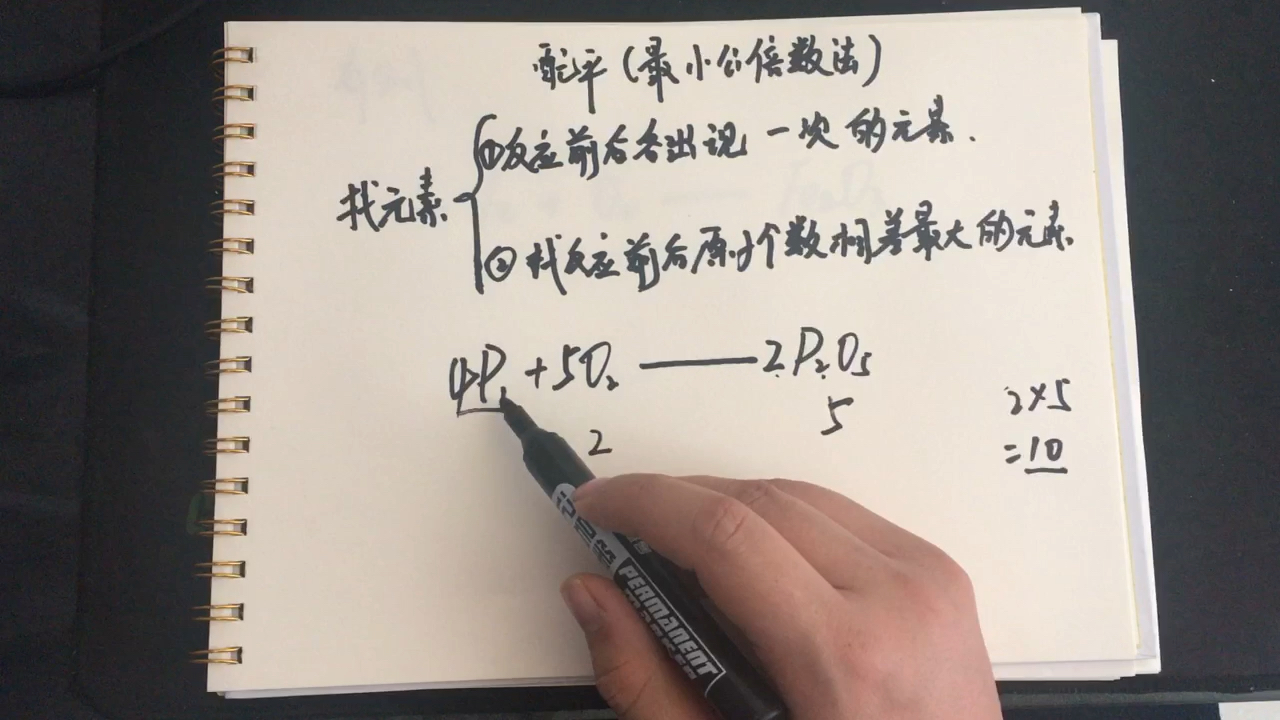 配平(最小公倍数法)
①反应前后各出现一次的元素.
找元素
②找反应前后原子个数相差最大的元素
4P + 5O₂ —— 2P₂O₅
2
5
2×5
=10
PERMANENT